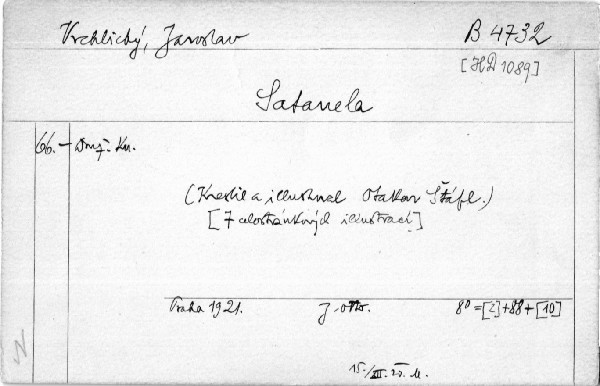 Vrchlický, Jaroslav
B 4732
[HD 1089]
Satanela
66.- Druž. Kn.
(Kreslil a illustroval Otakar Štáfl.)
[7 celostránkových illustrací]
Praha 1921.
J. Otto.
8° = [2] + 88 + [10]
15./III. 27. M.